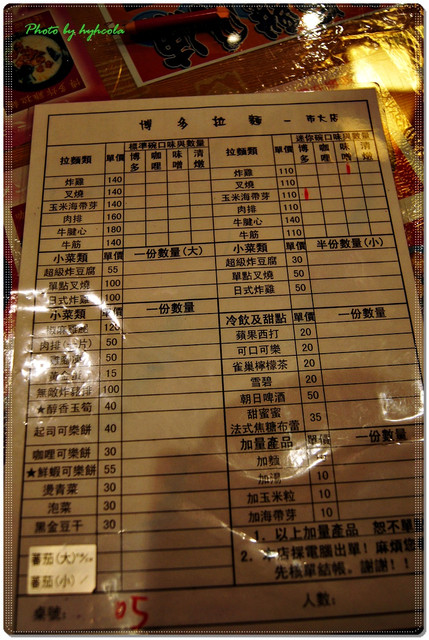 Photo by hyhcola
博多拉麵 - 市大店
拉麵類 單價 標準碗口味與數量 博多 咖哩 味噌 清燉
炸雞 140
叉燒 140
玉米海帶芽 140
肉排 160
牛腱心 180
牛筋 140
小菜類 單價 一份數量(大)
超級炸豆腐 55
單點叉燒 100
日式炸雞 100
小菜類 單價 一份數量
120
肉排 50
50
15
無敵炸雞排 100
★醇香玉筍 40
起司可樂餅 40
咖哩可樂餅 30
★鮮蝦可樂餅 55
燙青菜 30
泡菜 30
黑金豆干 30
蕃茄(大)
蕃茄(小)
桌號: 05
拉麵類 單價 迷你碗口味與數量 博多 咖哩 味噌 清燉
炸雞 110
叉燒 110
玉米海帶芽 110
肉排 110
牛腱心 140
牛筋 110
小菜類 單價 半份數量(小)
超級炸豆腐 30
單點叉燒 50
日式炸雞 50
冷飲及甜點 單價 一份數量
蘋果西打 20
可口可樂 20
雀巢檸檬茶 20
雪碧 20
朝日啤酒 50
甜蜜蜜
法式焦糖布蕾 35
加量產品 單價 一份數量
加麵
加湯 10
加玉米粒 10
加海帶芽 10
1. 以上加量產品 恕不單
2. 本店採電腦出單! 麻煩您
先核單結帳, 謝謝!!
人數: